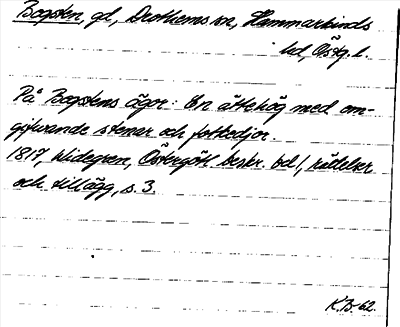 Bogsten, gd, Drothems sn, Hammarkinds
hd, Östg. l.
På Bogstens ägor: En ättehög med om-
gifvande stenar och fotkedjor.
1817, Widegren, Östergötl. beskr. bd 1, rättelser
och tillägg, s. 3.
K.B-62.